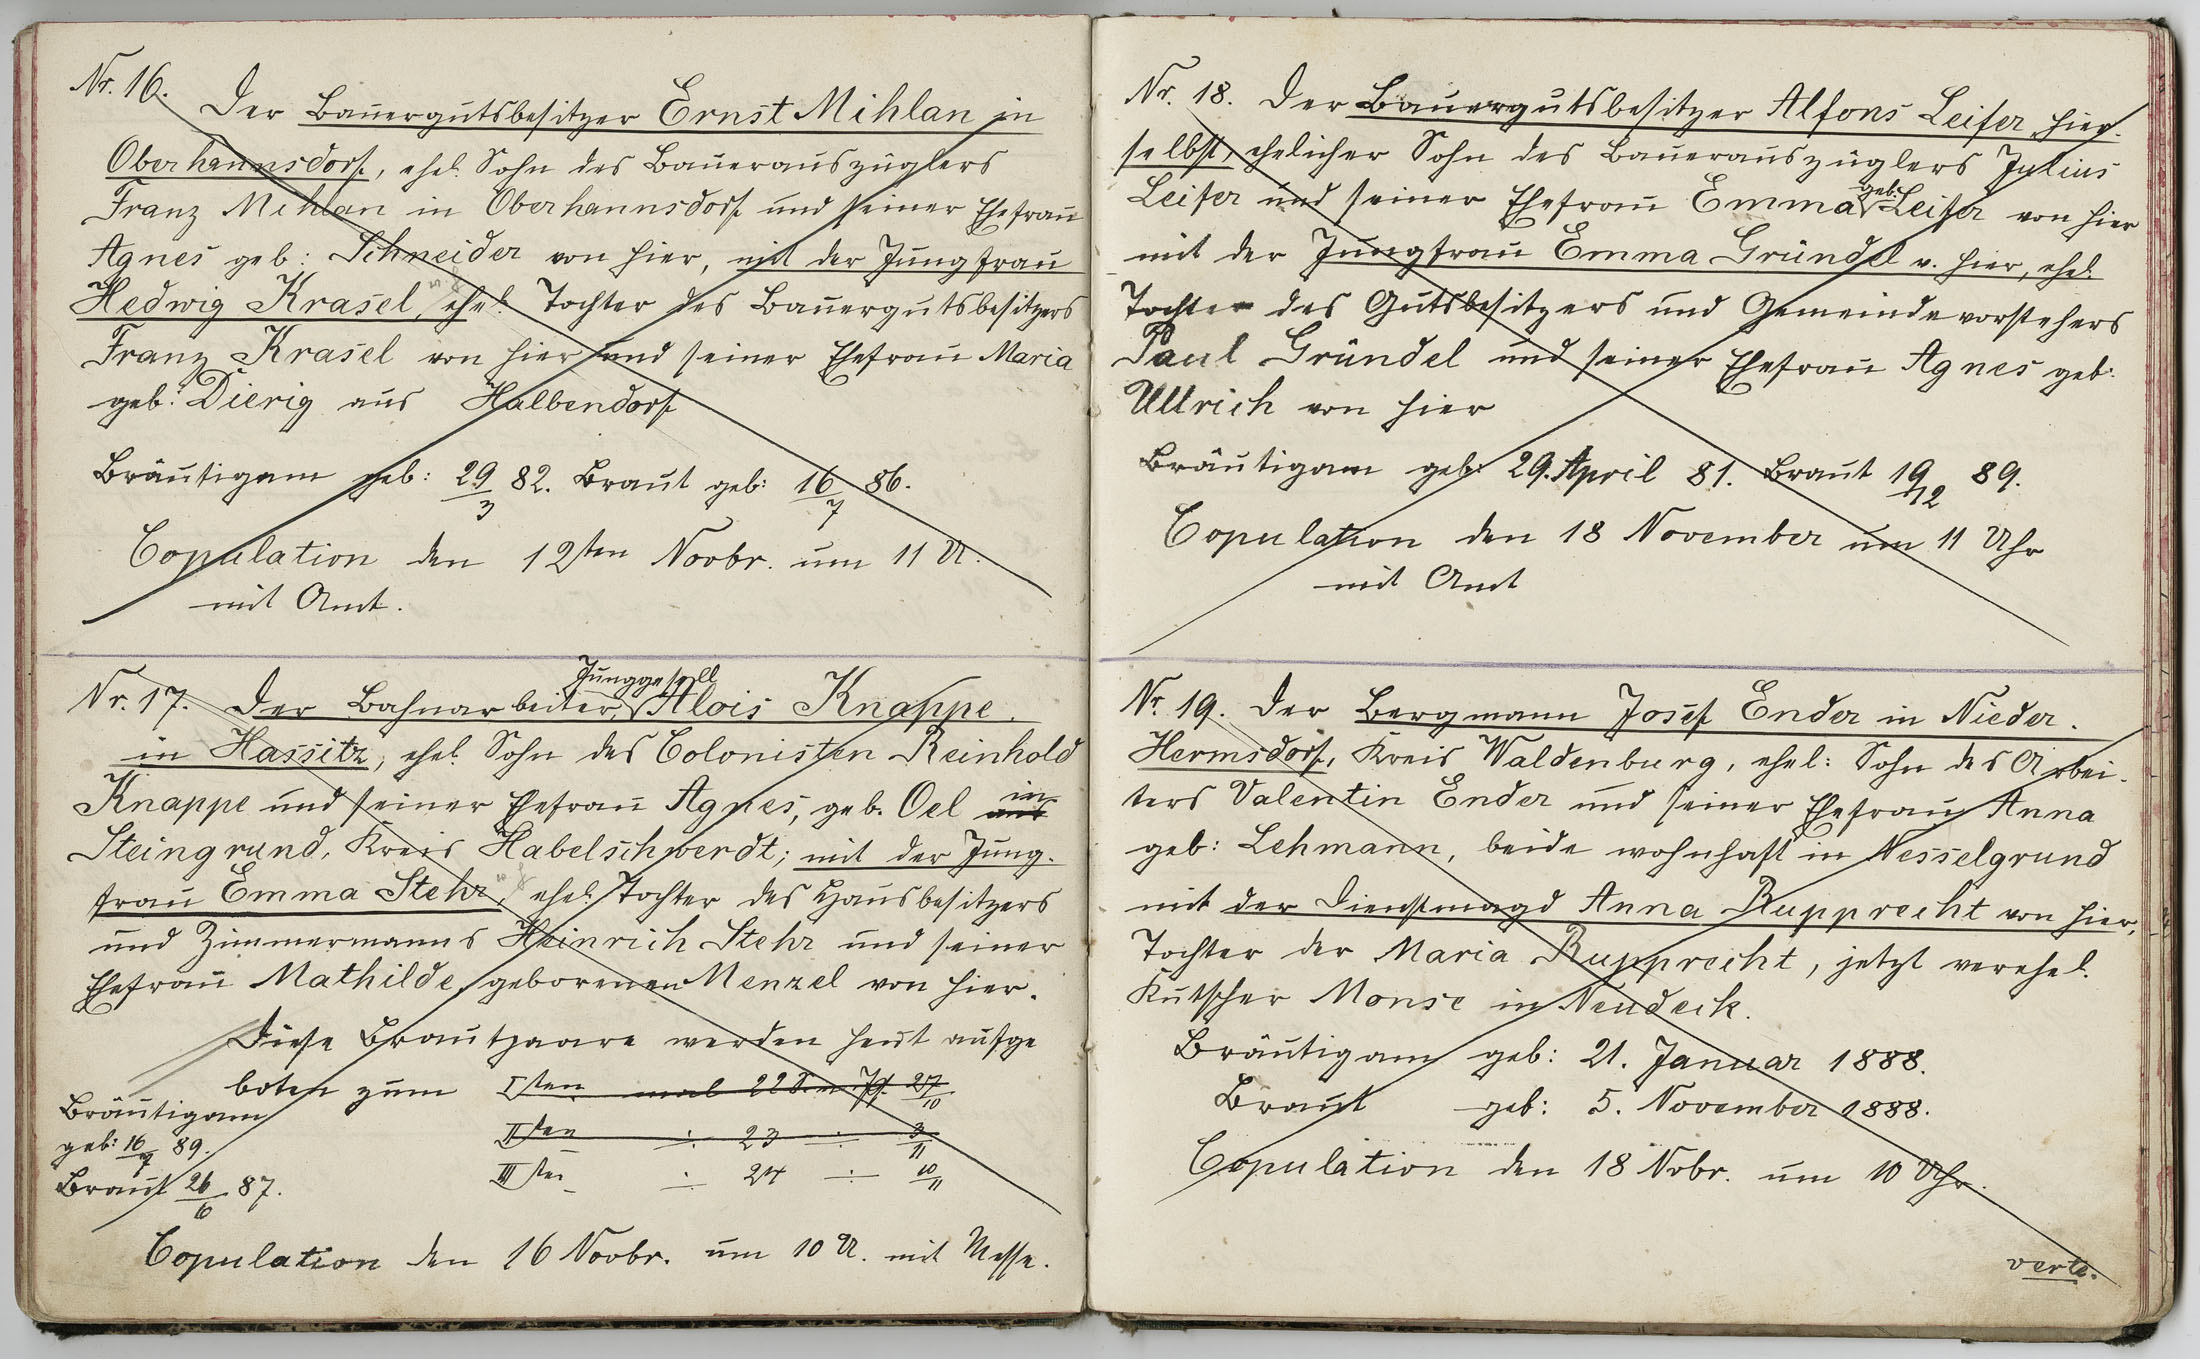 Nr. 16.
Der Bauergutsbesitzer Ernst Mihlan in
Oberhannsdorf, ehel. Sohn des Bauerauszüglers
Franz Mihlan in Oberhannsdorf und seiner Ehefrau
Agnes geb: Schneider von hier, mit der Jungfrau
Hedwig Krasel, ehel. Tochter des Bauergutsbesitzers
Franz Krasel von hier und seiner Ehefrau Maria
geb: Dierig aus Halbendorf
Bräutigam geb: 29/3 82. Braut geb: 16/7 86.
Copulation den 12ten Novbr. um 11 U.
mit Amt.
Junggesell
Nr. 17. Der Bahnarbeiter, Alois Knappe.
in Hassitz, ehel. Sohn des Colonisten Reinhold
Knappe und seiner Ehefrau Agnes, geb. Oel aus in
Steingrund, Kreis Habelschwerdt; mit der Jung-
frau Emma Stehr, ehel. Tochter des Hausbesitzers
und Zimmermanns Heinrich Stehr und seiner
Ehefrau Mathilde, geborenen Menzel von hier.
Diese Brautpaare werden heut aufge
boten zum Iten mal 22 S. n. Pf. 27/10
IIten ÷ 23 ÷ 3/11
IIIten ÷ 24 ÷ 10/11
Bräutigam
geb: 16/7 89.
Braut 26/6 87.
Copulation den 16 Novbr. um 10 U. mit Messe.
Nr. 18. Der Bauergutsbesitzer Alfons Leifer hier-
selbst, ehelicher Sohn des Bauerauszüglers Julius
Leifer und seiner Ehefrau Emma geb. Leifer von hier
mit der Jungfrau Emma Gründel v. hier, ehel.
Tochter des Gutsbesitzers und Gemeindevorstehers
Paul Gründel und seiner Ehefrau Agnes geb:
Ullrich von hier
Bräutigam geb: 29. April 81. Braut 19/12 89.
Copulation den 18 November um 11 Uhr
mit Amt
Nr. 19. Der Bergmann Josef Ender in Nieder-
Hermsdorf, Kreis Waldenburg, ehel: Sohn des Arbei-
ters Valentin Ender und seiner Ehefrau Anna
geb: Lehmann, beide wohnhaft in Nesselgrund
mit der Dienstmagd Anna Rupprecht von hier,
Tochter der Maria Rupprecht, jetzt verehel.
Kutscher Monse in Neudeck.
Bräutigam geb: 21. Januar 1888.
Braut geb: 5. November 1888.
Copulation den 18 Nvbr. um 10 Uhr.
verte.